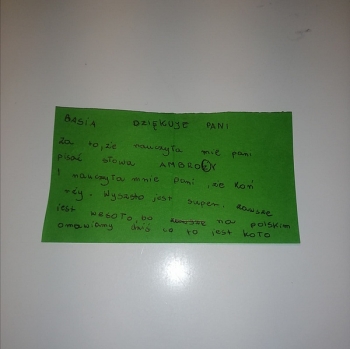 BASIA DZIĘKUJE PANI
Za to, że nauczyła mie pani
pisać słowa AMBROŻY
I nauczyła mnie pani, że koń
rży. Wyszsto jest super. zawsze
jest wesoło, bo zawsze na polskim
omawiamy dziś co to jest koło